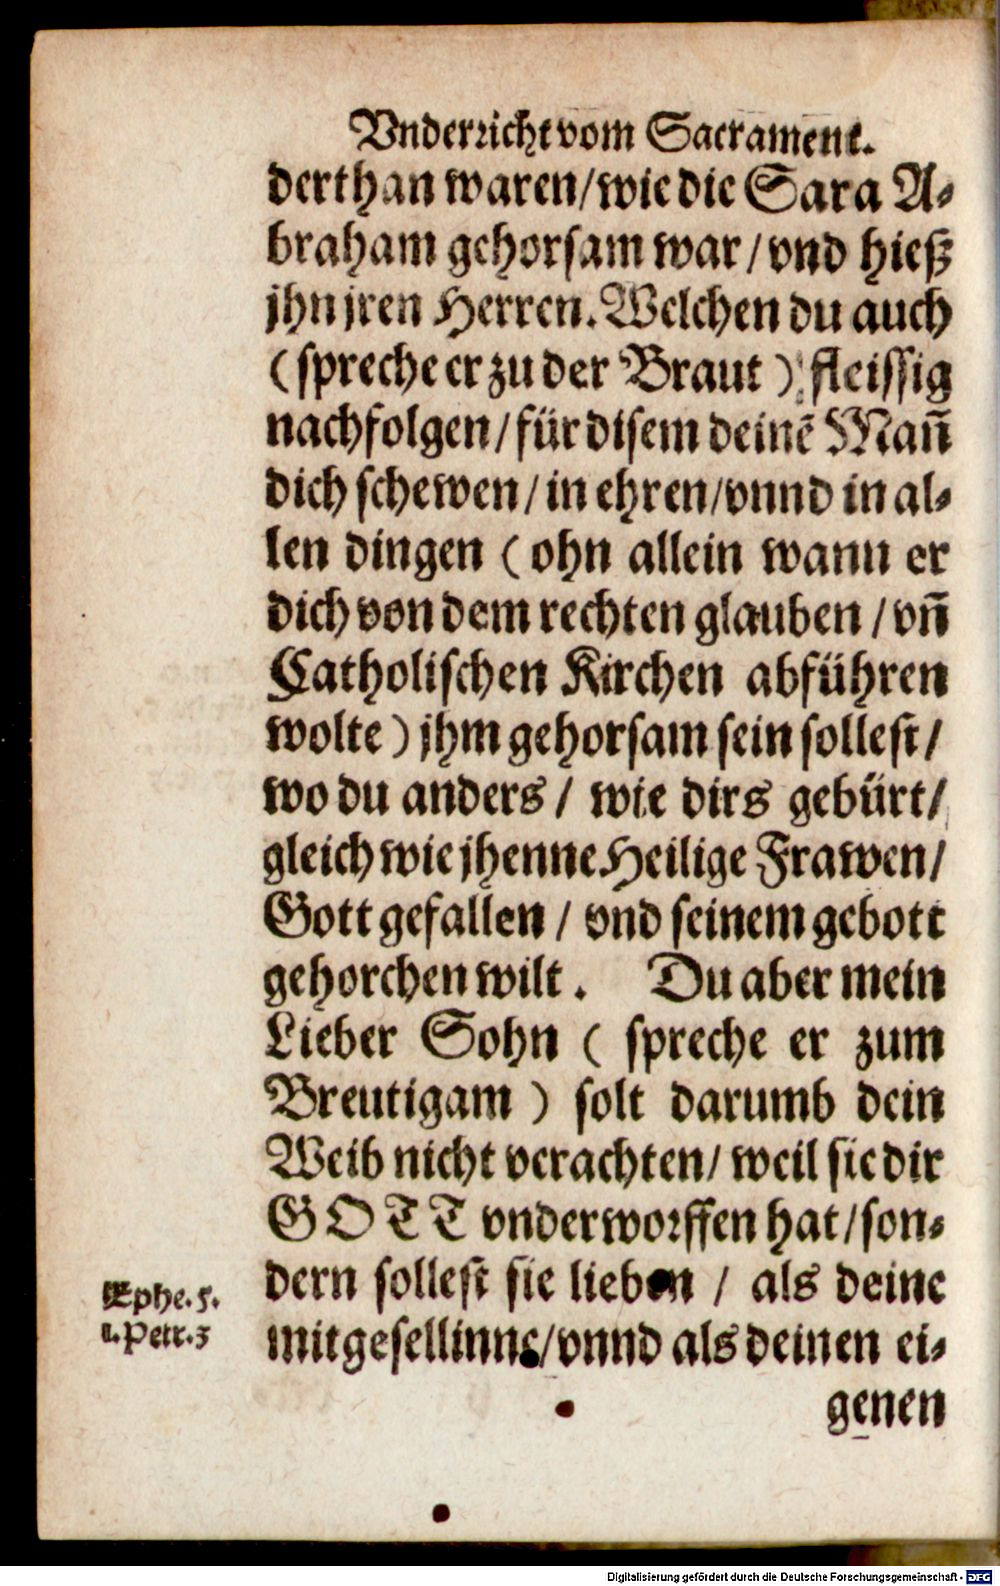 Vnderricht vom Sacrament.
derthan waren/wie die Sara A-
braham gehorsam war/vnd hieß
jhn jren Herren. Welchen du auch
(spreche er zu der Braut) fleissig
nachfolgen/für disem deinē Mañ
dich schewen/in ehren/vnnd in al-
len dingen (ohn allein wann er
dich von dem rechten glauben/vñ
Catholischen Kirchen abführen
wolte) jhm gehorsam sein sollest/
wo du anders/wie dirs gebürt/
gleich wie jhenne Heilige Frawen/
Gott gefallen/vnd seinem gebott
gehorchen wilt. Du aber mein
Lieber Sohn (spreche er zum
Breutigam) solt darumb dein
Weib nicht verachten/weil sie dir
GOTT vnderworffen hat/son-
Ephe. 5.
1. Petr. 3
dern sollest sie lieben/als deine
mitgesellinne/vnnd als deinen ei-
genen
Digitalisierung gefördert durch die Deutsche Forschungsgemeinschaft - DFG